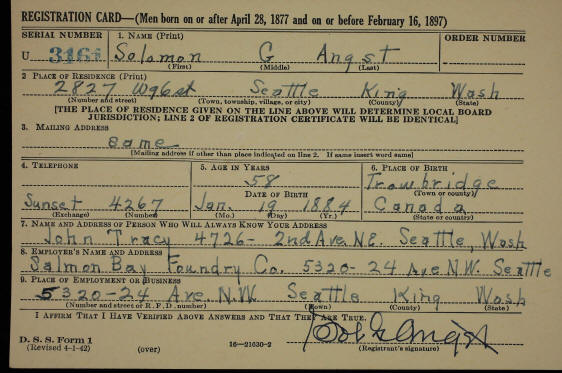 REGISTRATION CARD—(Men born on or after April 28, 1877 and on or before February 16, 1897)
SERIAL NUMBER 1. NAME (Print) ORDER NUMBER
U Solomon G Angst
(First) (Middle) (Last)
2 PLACE OF RESIDENCE (Print)
2827 W 96 st Seattle King Wash
(Number and street) (Town, township, village, or city) (County) (State)
[THE PLACE OF RESIDENCE GIVEN ON THE LINE ABOVE WILL DETERMINE LOCAL BOARD
JURISDICTION; LINE 2 OF REGISTRATION CERTIFICATE WILL BE IDENTICAL]
3. MAILING ADDRESS
same
[Mailing address if other than place indicated on line 2. If same insert word same]
4. TELEPHONE 5. AGE IN YEARS 6. PLACE OF BIRTH
58 Trowbridge
DATE OF BIRTH (Town or county)
Sunset 4267 Jan. 19 1884 Canada
(Exchange) (Number) (Mo.) (Day) (Yr.) (State or country)
7. NAME AND ADDRESS OF PERSON WHO WILL ALWAYS KNOW YOUR ADDRESS
John Tracy 4726- 2nd Ave N.E. Seattle, Wash
8. EMPLOYER'S NAME AND ADDRESS
Salmon Bay Foundry Co. 5320-24 Ave N.W. Seattle
9. PLACE OF EMPLOYMENT OR BUSINESS
5320-24 Ave. N.W. Seattle King Wash
(Number and street or R. F. D. number) (Town) (County) (State)
I AFFIRM THAT I HAVE VERIFIED ABOVE ANSWERS AND THAT THEY ARE TRUE.
D. S. S. Form 1
(Revised 4-1-42) (over) 16—21630-2 (Registrant's signature)